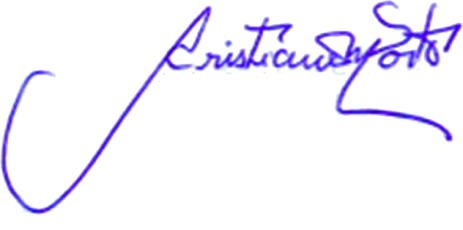 Cristian Soto